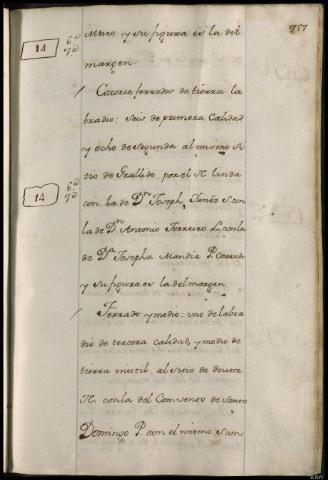 757
Muro y su figura es la del
margen.
14
6ª
7ª
Catorce ferrados de tierra la
bradio: Seis de primera Calidad
y ocho de Segunda al mismo Si
tio de linda por el N.
14
6ª
7ª
con la de Dⁿ Joseph, Yañes S. con
la de Dⁿ Antonio Ferreiro L. con la
de Dª Josepha Mandia P. Cerrado
y su figura es la del margen
Ferrado y medio: uno de labra
dio de tercera calidad, y medio de
tierra inutil al Sitio de
N. con la del Convento de Santo
Domingo P. con el mismo, S. con